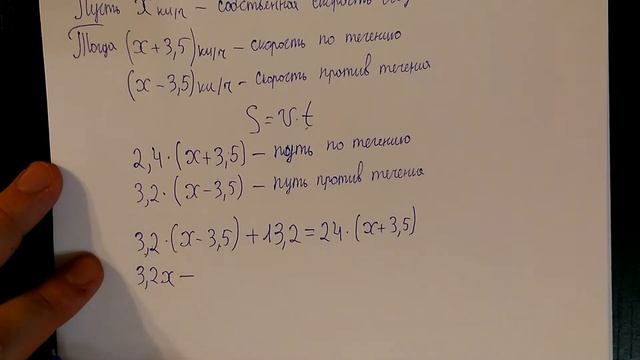 Пусть x км/ч – собственная скорость
Тогда (x+3,5) км/ч – скорость по течению
(x-3,5) км/ч – скорость против течения
S=v·t
2,4·(x+3,5) – путь по течению
3,2·(x-3,5) – путь против течения
3,2·(x-3,5)+13,2=24·(x+3,5)
3,2x –